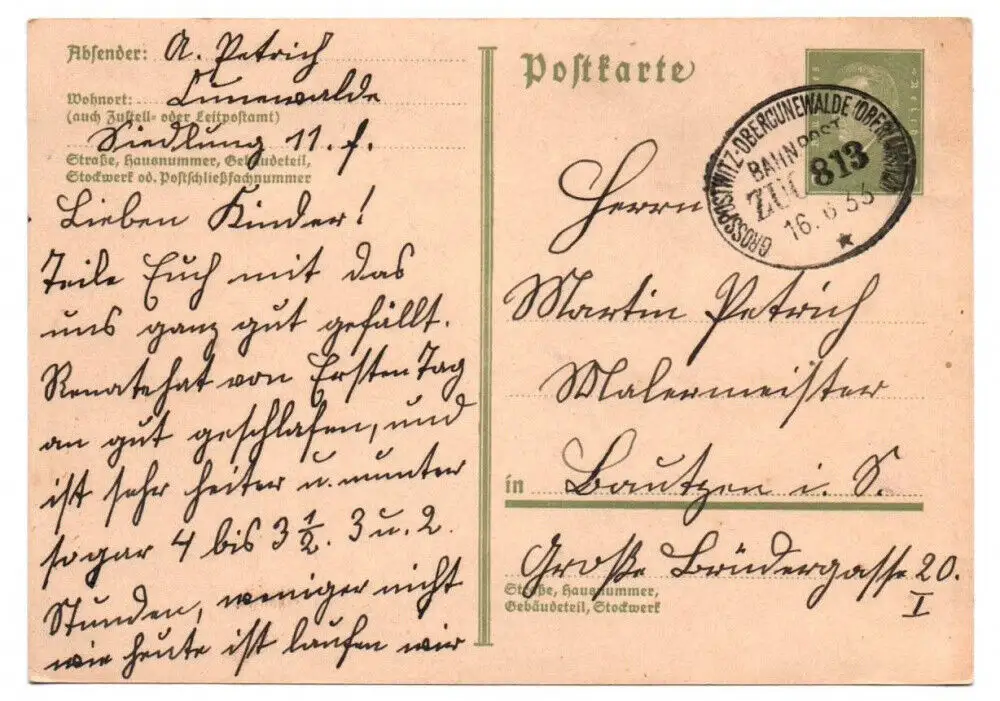 Absender: A. Petrich
Wohnort: Cunewalde
(auch Zustell- oder Leitpostamt)
Siedlung 11. f.
Straße, Hausnummer, Gebäudeteil,
Stockwerk od. Postschließfachnummer
Lieben Kinder!
Teile Euch mit das
uns ganz gut gefällt.
Renate hat von Ersten Tag
an gut geschlafen, und
ist sehr heiter u. munter
sogar 4 bis 3 1/2. 3 u. 2.
Stunden, weniger nicht
wie heute ist laufen wir
Postkarte
GROSSPOSTWITZ-OBERCUNEWALDE
BAHNPOST
ZUG 813
16. 6 33
Herrn
Martin Petrich
Malermeister
in Bautzen i. S.
Große Brüdergasse 20.
I
Straße, Hausnummer,
Gebäudeteil, Stockwerk